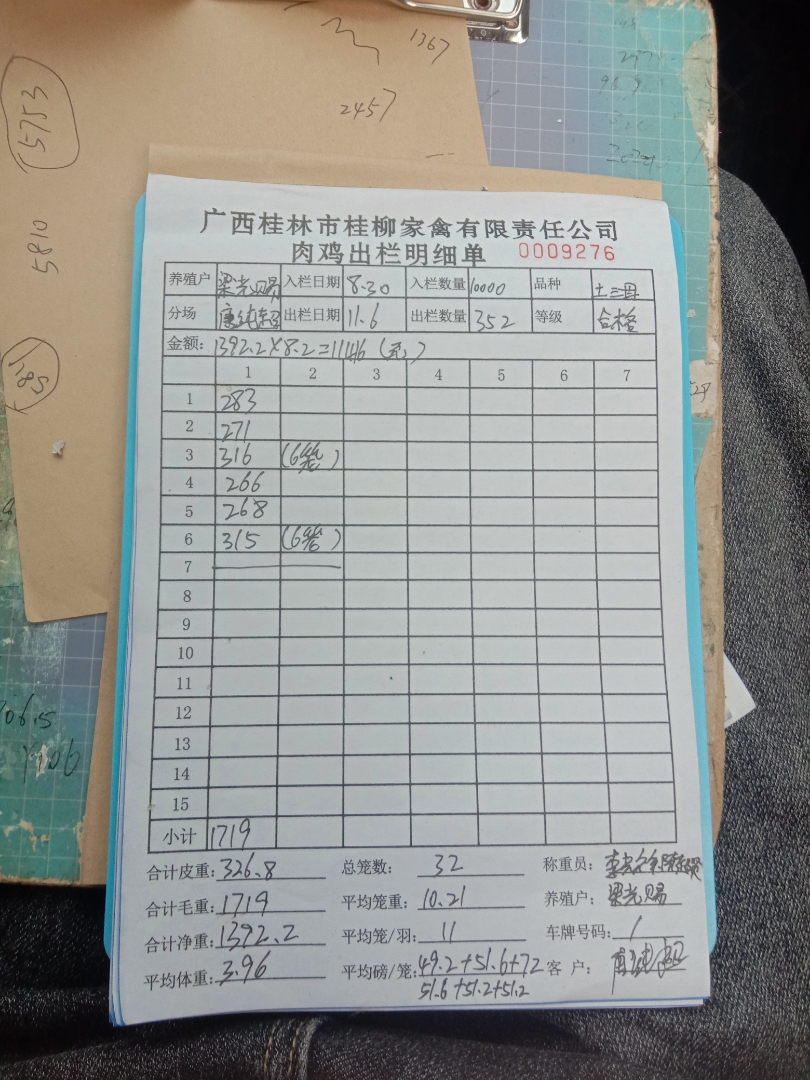 1367
2457
5753
5810
广西桂林市桂柳家禽有限责任公司
肉鸡出栏明细单 0009276
养殖户 梁光赐 入栏日期 8.30 入栏数量 10000 品种 土三母
分场 出栏日期 11.6 出栏数量 352 等级 合格
金额: 1392.2×8.2=11416
1 2 3 4 5 6 7
1 283
2 271
3 316 (6笼)
4 266
5 268
6 315 (6笼)
7
8
9
10
11
12
13
14
15
小计 1719
合计皮重: 326.8 总笼数: 32 称重员:
合计毛重: 1719 平均笼重: 10.21 养殖户: 梁光赐
合计净重: 1392.2 平均笼/羽: 11 车牌号码: 1
平均体重: 3.96 平均磅/笼: 49.2+51.6+72 客户:
51.6+51.2+51.2